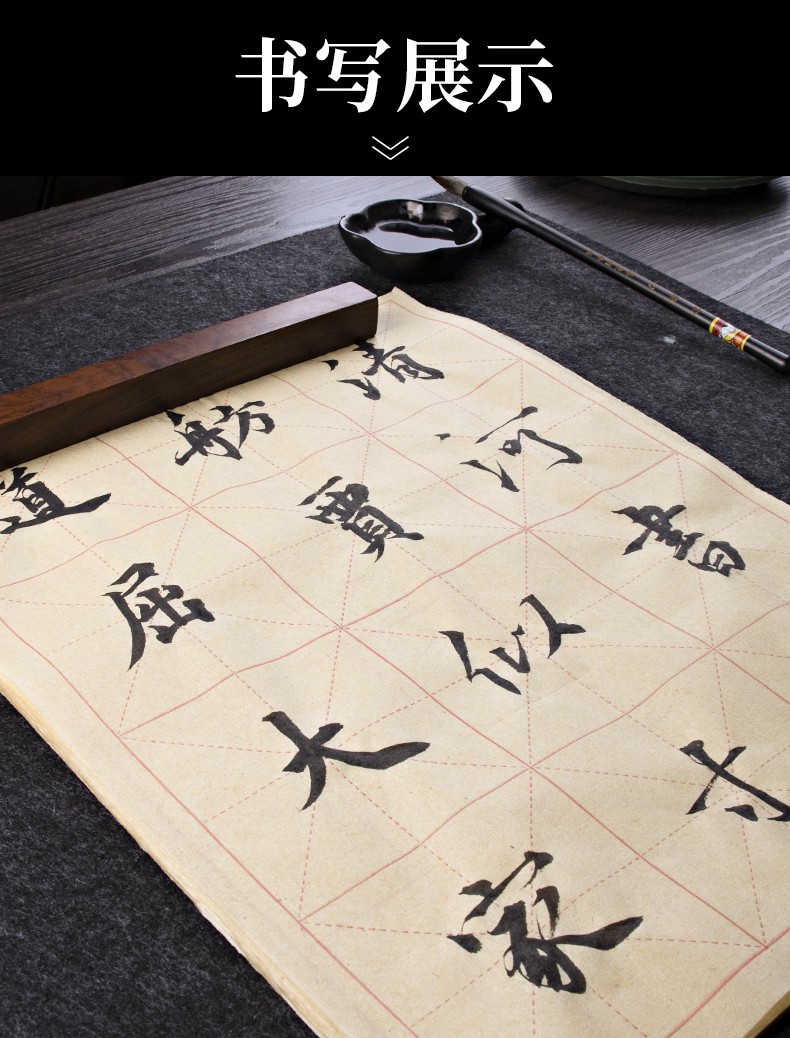 书写展示
清河書
舫賈似寸
道屈大家